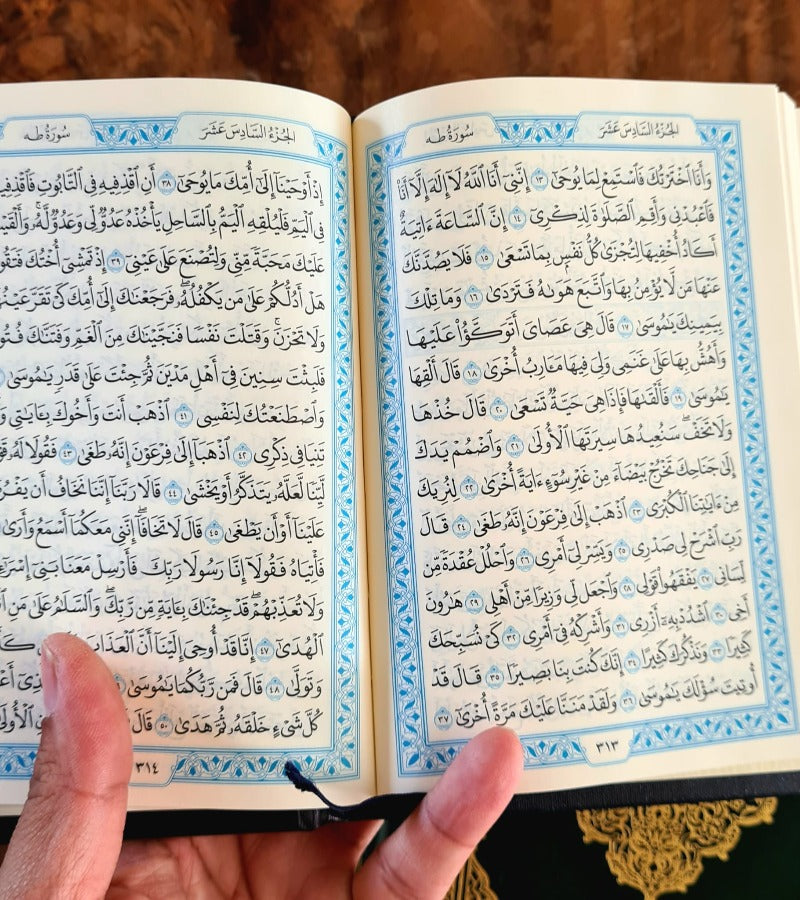 الجزء السادس عشر
سورة طه
وَأَنَا ٱخْتَرْتُكَ فَٱسْتَمِعْ لِمَا يُوحَىٰٓ ١٣ إِنَّنِىٓ أَنَا ٱللَّهُ لَآ إِلَٰهَ إِلَّآ أَنَا۠
فَٱعْبُدْنِى وَأَقِمِ ٱلصَّلَوٰةَ لِذِكْرِىٓ ١٤ إِنَّ ٱلسَّاعَةَ ءَاتِيَةٌ
أَكَادُ أُخْفِيهَا لِتُجْزَىٰ كُلُّ نَفْسٍۭ بِمَا تَسْعَىٰ ١٥ فَلَا يَصُدَّنَّكَ
عَنْهَا مَن لَّا يُؤْمِنُ بِهَا وَٱتَّبَعَ هَوَىٰهُ فَتَرْدَىٰ ١٦ وَمَا تِلْكَ
بِيَمِينِكَ يَٰمُوسَىٰ ١٧ قَالَ هِىَ عَصَاىَ أَتَوَكَّؤُا۟ عَلَيْهَا
وَأَهُشُّ بِهَا عَلَىٰ غَنَمِى وَلِىَ فِيهَا مَـَٔارِبُ أُخْرَىٰ ١٨ قَالَ أَلْقِهَا
يَٰمُوسَىٰ ١٩ فَأَلْقَىٰهَا فَإِذَا هِىَ حَيَّةٌ تَسْعَىٰ ٢٠ قَالَ خُذْهَا
وَلَا تَخَفْ ۖ سَنُعِيدُهَا سِيرَتَهَا ٱلْأُولَىٰ ٢١ وَٱضْمُمْ يَدَكَ
إِلَىٰ جَنَاحِكَ تَخْرُجْ بَيْضَآءَ مِنْ غَيْرِ سُوٓءٍ ءَايَةً أُخْرَىٰ ٢٢ لِنُرِيَكَ
مِنْ ءَايَٰتِنَا ٱلْكُبْرَى ٢٣ ٱذْهَبْ إِلَىٰ فِرْعَوْنَ إِنَّهُۥ طَغَىٰ ٢٤ قَالَ
رَبِّ ٱشْرَحْ لِى صَدْرِى ٢٥ وَيَسِّرْ لِىٓ أَمْرِى ٢٦ وَٱحْلُلْ عُقْدَةً مِّن
لِّسَانِى ٢٧ يَفْقَهُوا۟ قَوْلِى ٢٨ وَٱجْعَل لِّى وَزِيرًا مِّنْ أَهْلِى ٢٩ هَٰرُونَ
أَخِى ٣٠ ٱشْدُدْ بِهِۦٓ أَزْرِى ٣١ وَأَشْرِكْهُ فِىٓ أَمْرِى ٣٢ كَىْ نُسَبِّحَكَ
كَثِيرًا ٣٣ وَنَذْكُرَكَ كَثِيرًا ٣٤ إِنَّكَ كُنتَ بِنَا بَصِيرًا ٣٥ قَالَ قَدْ
أُوتِيتَ سُؤْلَكَ يَٰمُوسَىٰ ٣٦ وَلَقَدْ مَنَنَّا عَلَيْكَ مَرَّةً أُخْرَىٰٓ ٣٧
٣١٣
الجزء السادس عشر
سورة طه
إِذْ أَوْحَيْنَآ إِلَىٰٓ أُمِّكَ مَا يُوحَىٰٓ ٣٨ أَنِ ٱقْذِفِيهِ فِى ٱلتَّابُوتِ فَٱقْذِفِيهِ
فِى ٱلْيَمِّ فَلْيُلْقِهِ ٱلْيَمُّ بِٱلسَّاحِلِ يَأْخُذْهُ عَدُوٌّ لِّى وَعَدُوٌّ لَّهُۥ ۚ
عَلَيْكَ مَحَبَّةً مِّنِّى وَلِتُصْنَعَ عَلَىٰ عَيْنِىٓ ٣٩ إِذْ تَمْشِىٓ أُخْتُكَ
هَلْ أَدُلُّكُمْ عَلَىٰ مَن يَكْفُلُهُۥ ۖ فَرَجَعْنَٰكَ إِلَىٰٓ أُمِّكَ كَىْ تَقَرَّ عَيْنُهَا
وَلَا تَحْزَنَ ۚ وَقَتَلْتَ نَفْسًا فَنَجَّيْنَٰكَ مِنَ ٱلْغَمِّ وَفَتَنَّٰكَ
فَلَبِثْتَ سِنِينَ فِىٓ أَهْلِ مَدْيَنَ ثُمَّ جِئْتَ عَلَىٰ قَدَرٍ يَٰمُوسَىٰ
وَٱصْطَنَعْتُكَ لِنَفْسِى ٤١ ٱذْهَبْ أَنتَ وَأَخُوكَ بِـَٔايَٰتِى
تَنِيَا فِى ذِكْرِى ٤٢ ٱذْهَبَآ إِلَىٰ فِرْعَوْنَ إِنَّهُۥ طَغَىٰ ٤٣ فَقُولَا لَهُۥ
لَّيِّنًا لَّعَلَّهُۥ يَتَذَكَّرُ أَوْ يَخْشَىٰ ٤٤ قَالَا رَبَّنَآ إِنَّنَا نَخَافُ أَن
عَلَيْنَآ أَوْ أَن يَطْغَىٰ ٤٥ قَالَ لَا تَخَافَآ ۖ إِنَّنِى مَعَكُمَآ أَسْمَعُ وَأَرَىٰ
فَأْتِيَاهُ فَقُولَآ إِنَّا رَسُولَا رَبِّكَ فَأَرْسِلْ مَعَنَا بَنِىٓ
وَلَا تُعَذِّبْهُمْ ۖ قَدْ جِئْنَٰكَ بِـَٔايَةٍ مِّن رَّبِّكَ ۖ وَٱلسَّلَٰمُ عَلَىٰ مَنِ
ٱلْهُدَىٰٓ ٤٧ إِنَّا قَدْ أُوحِىَ إِلَيْنَآ أَنَّ ٱلْعَذَابَ
وَتَوَلَّىٰ ٤٨ قَالَ فَمَن رَّبُّكُمَا يَٰمُوسَىٰ
كُلَّ شَىْءٍ خَلْقَهُۥ ثُمَّ هَدَىٰ ٥٠ قَالَ
٣١٤